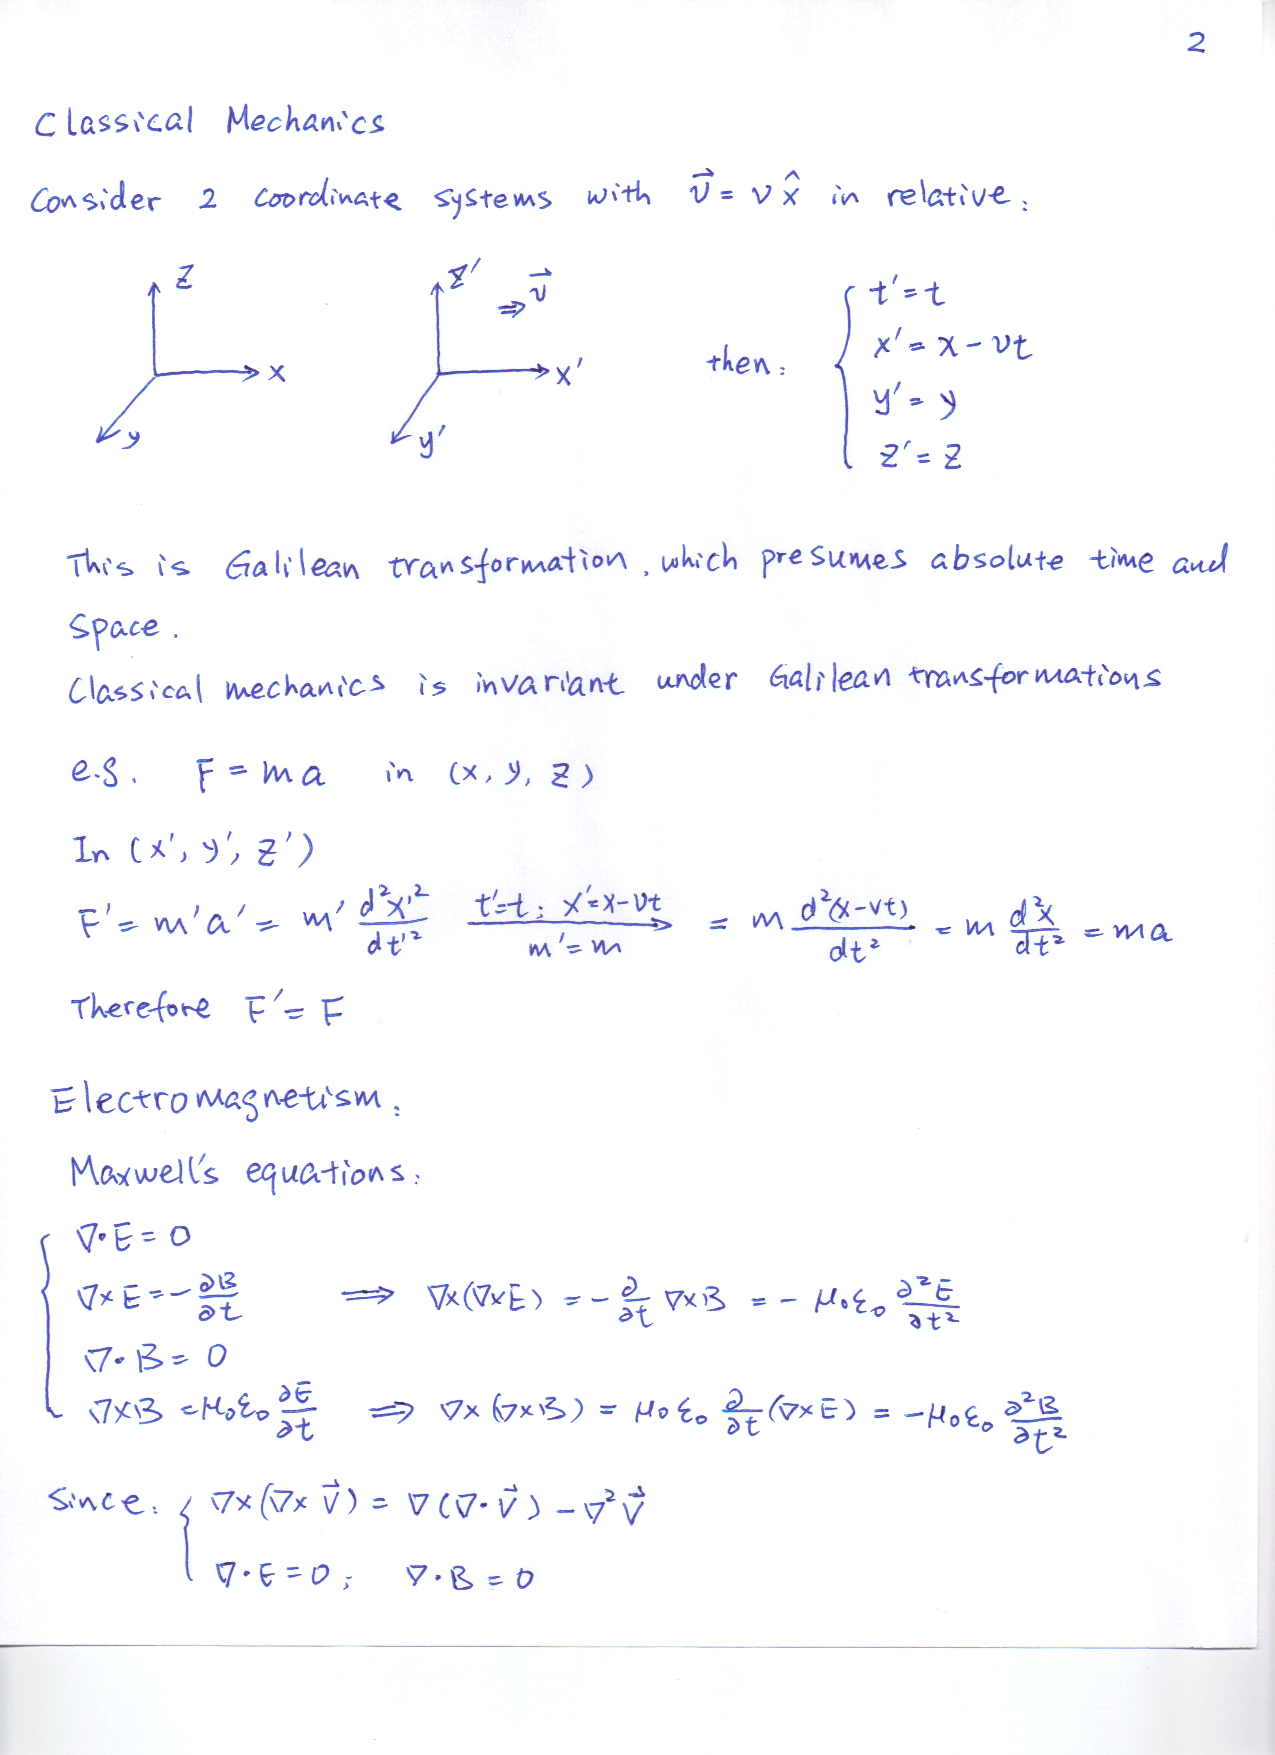 2
Classical Mechanics
Consider 2 coordinate systems with v⃗ = v x̂ in relative:
z z' ⇒ v⃗
x x'
y y'
then:
t' = t
x' = x - vt
y' = y
z' = z
This is Galilean transformation, which presumes absolute time and
space.
Classical mechanics is invariant under Galilean transformations
e.g. F = ma in (x, y, z)
In (x', y', z')
F' = m'a' = m' d²x'²/dt'² t'=t; x'=x-vt / m'=m → = m d²(x-vt)/dt² = m d²x/dt² = ma
Therefore F' = F
Electromagnetism:
Maxwell's equations:
∇·E = 0
∇×E = -∂B/∂t ⟹ ∇×(∇×E) = -∂/∂t ∇×B = -μ₀ε₀ ∂²E/∂t²
∇·B = 0
∇×B = μ₀ε₀ ∂E/∂t ⟹ ∇×(∇×B) = μ₀ε₀ ∂/∂t (∇×E) = -μ₀ε₀ ∂²B/∂t²
Since: ∇×(∇×V⃗) = ∇(∇·V⃗) - ∇²V⃗
∇·E = 0; ∇·B = 0